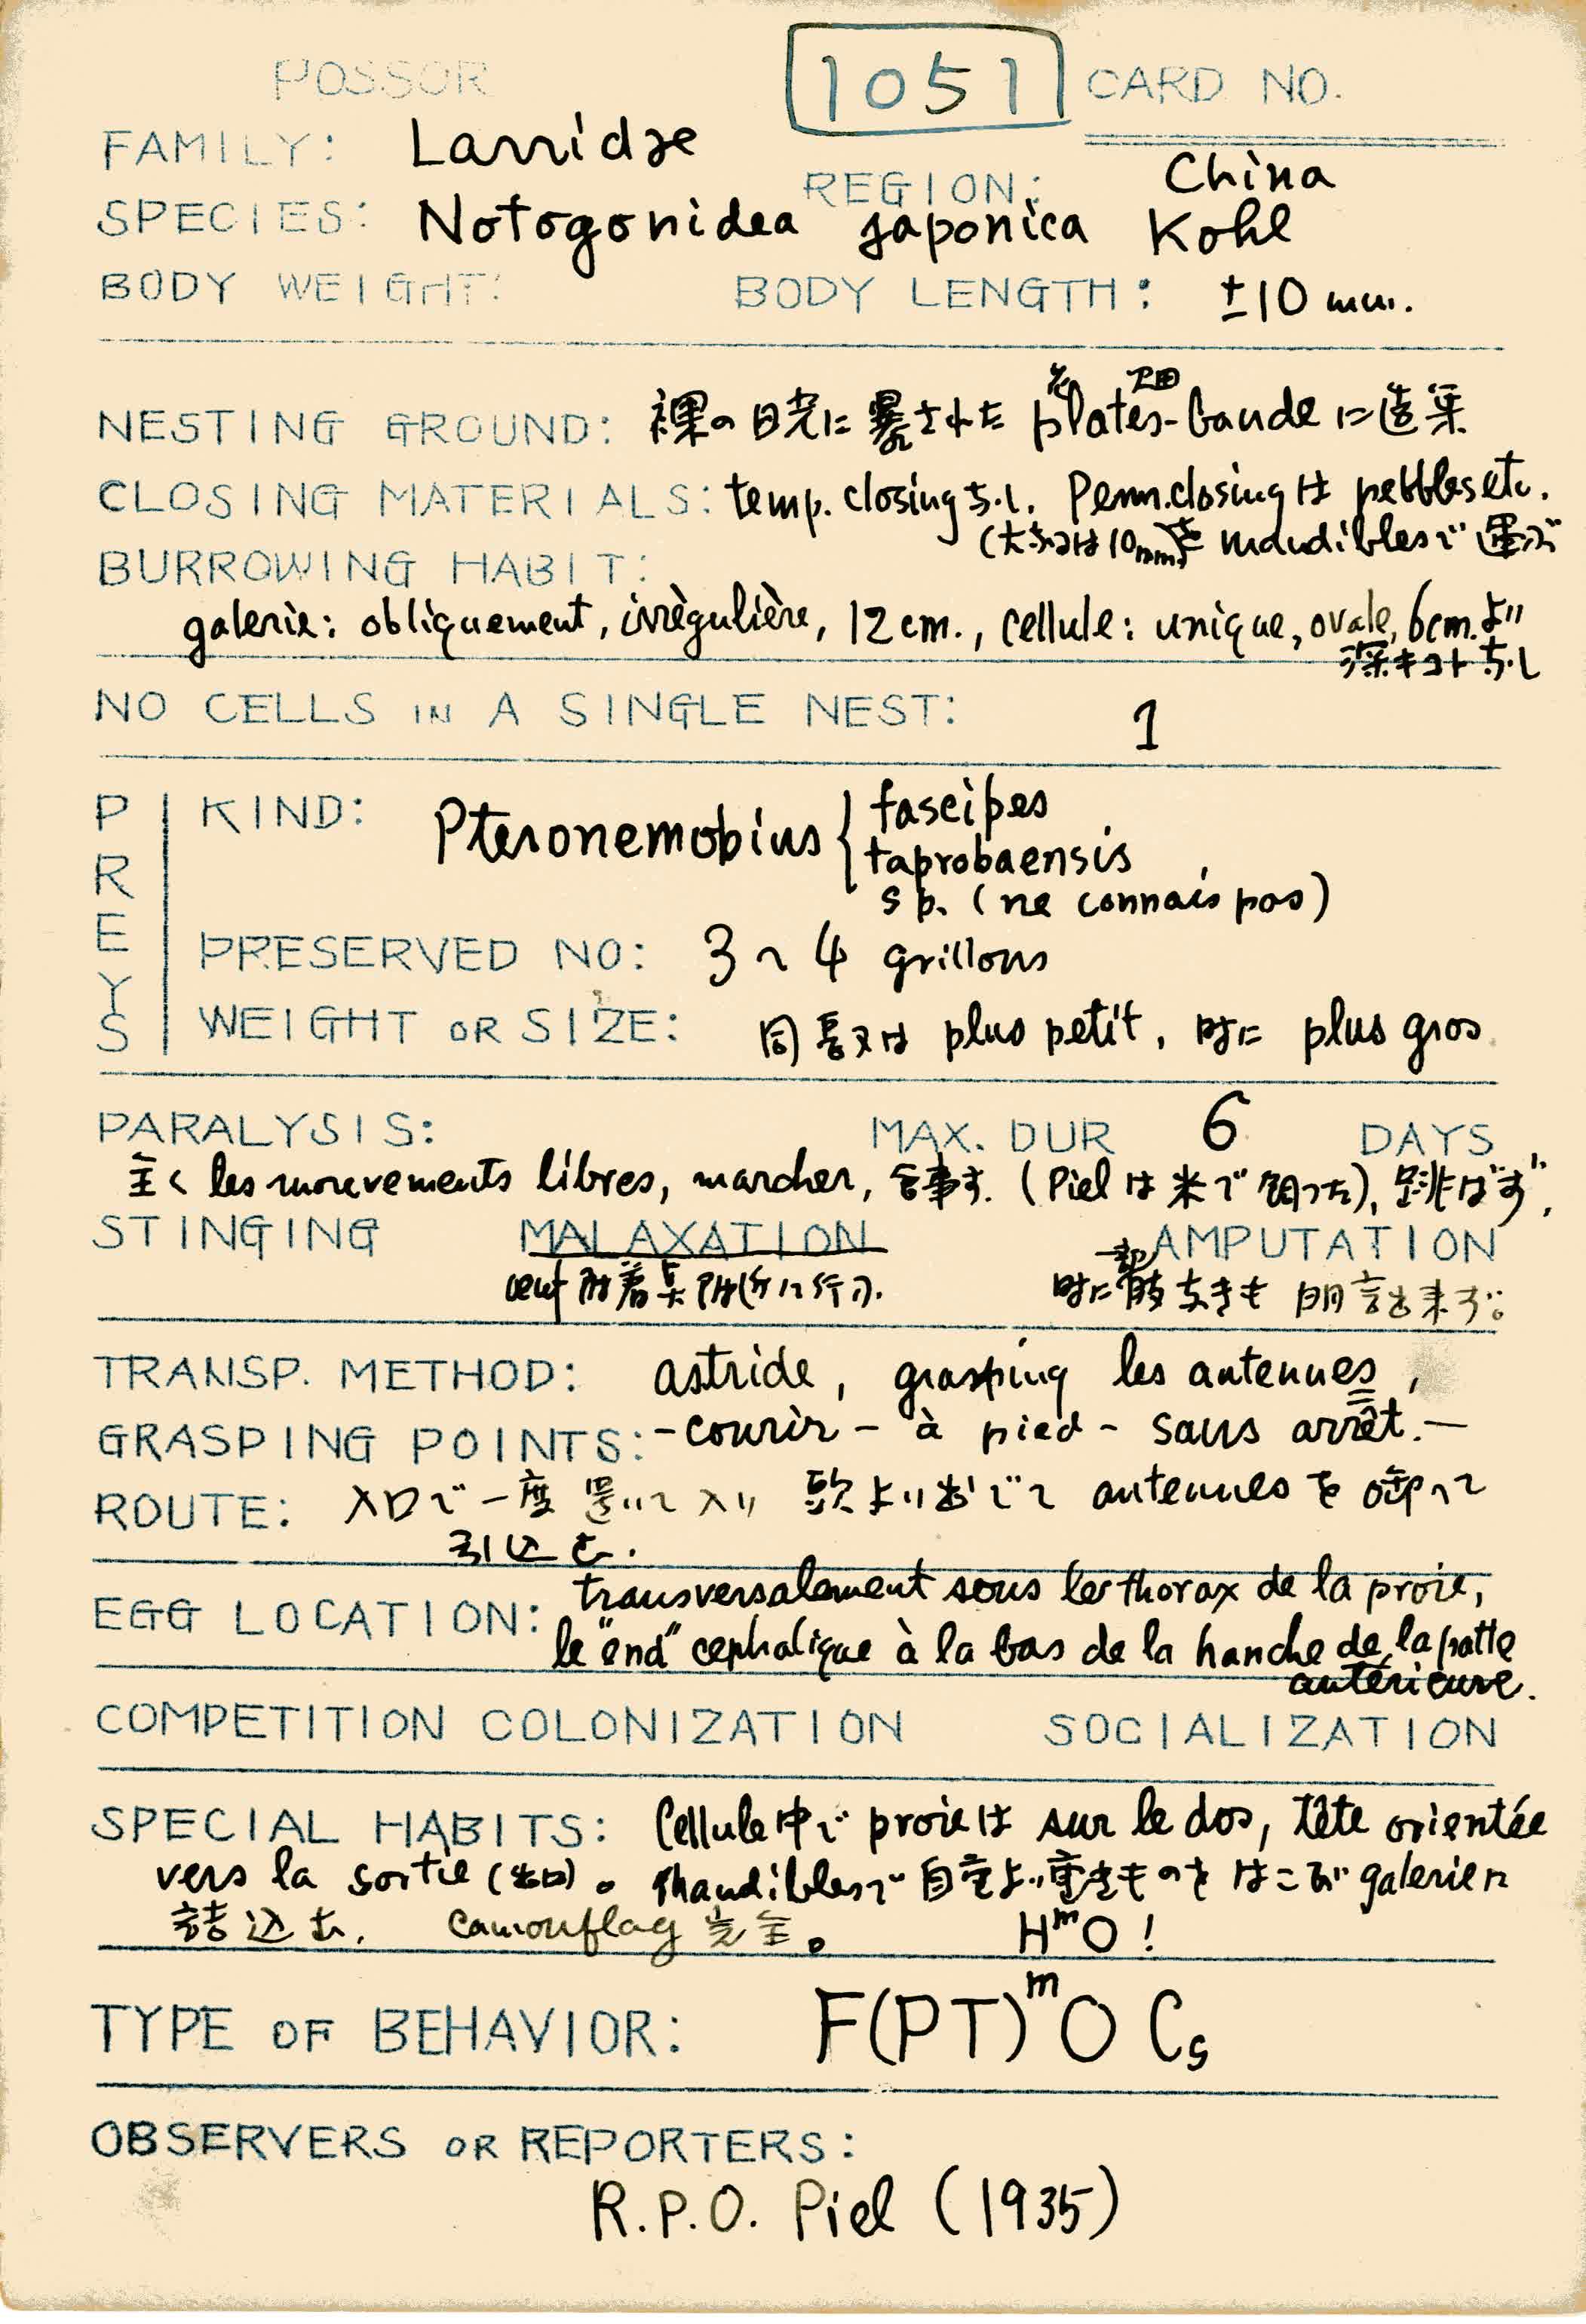 POSSOR 1051 CARD NO.
FAMILY: Larridae
REGION: China
SPECIES: Notogonidea japonica Kohl
BODY WEIGHT: BODY LENGTH: ±10 mm.
花 畑
NESTING GROUND: 裸の日光に暴された plates-bande に造巣
CLOSING MATERIALS: temp. closing ナシ. Perm. closing は pebbles etc.
(大キサハ10mm) mandibles で運ぶ
BURROWING HABIT:
galerie: obliquement, irrègulière, 12 cm., cellule: unique, ovale, 6cm.ヨリ
深キコトナシ
NO CELLS IN A SINGLE NEST: 1
PREYS
KIND: Pteronemobius { fascipes
taprobaensis
sp. (ne connais pas)
PRESERVED NO: 3~4 grillons
WEIGHT OR SIZE: 同長又は plus petit, 時に plus gros
PARALYSIS: MAX. DUR 6 DAYS
全く les mouvements libres, marcher, 食事す. (Piel は米で飼った), 跳ばず,
STINGING MALAXATION AMPUTATION
oeuf 附着点附近に行う.
一部
時に肢なきも 明言出来ず。
TRANSP. METHOD: astride, grasping les antennes,
GRASPING POINTS: -courir- à pied- sans arrêt.—
ROUTE: 入口で一度置いて入り 頭より出でて antennes を噛って
引込む.
EGG LOCATION: transversalement sous les thorax de la proie,
le "end" cephalique à la bas de la hanche de la patte
antérieure.
COMPETITION COLONIZATION SOCIALIZATION
SPECIAL HABITS: Cellule 中で proie は sur le dos, tête orientée
vers la sortie (出口)。 mandibles で 自重より重きものを はこぶ galerie に
詰込む. camouflag 完全。 HᵐO!
TYPE OF BEHAVIOR: F(PT)ᵐO Cs
OBSERVERS OR REPORTERS:
R.P.O. Piel (1935)